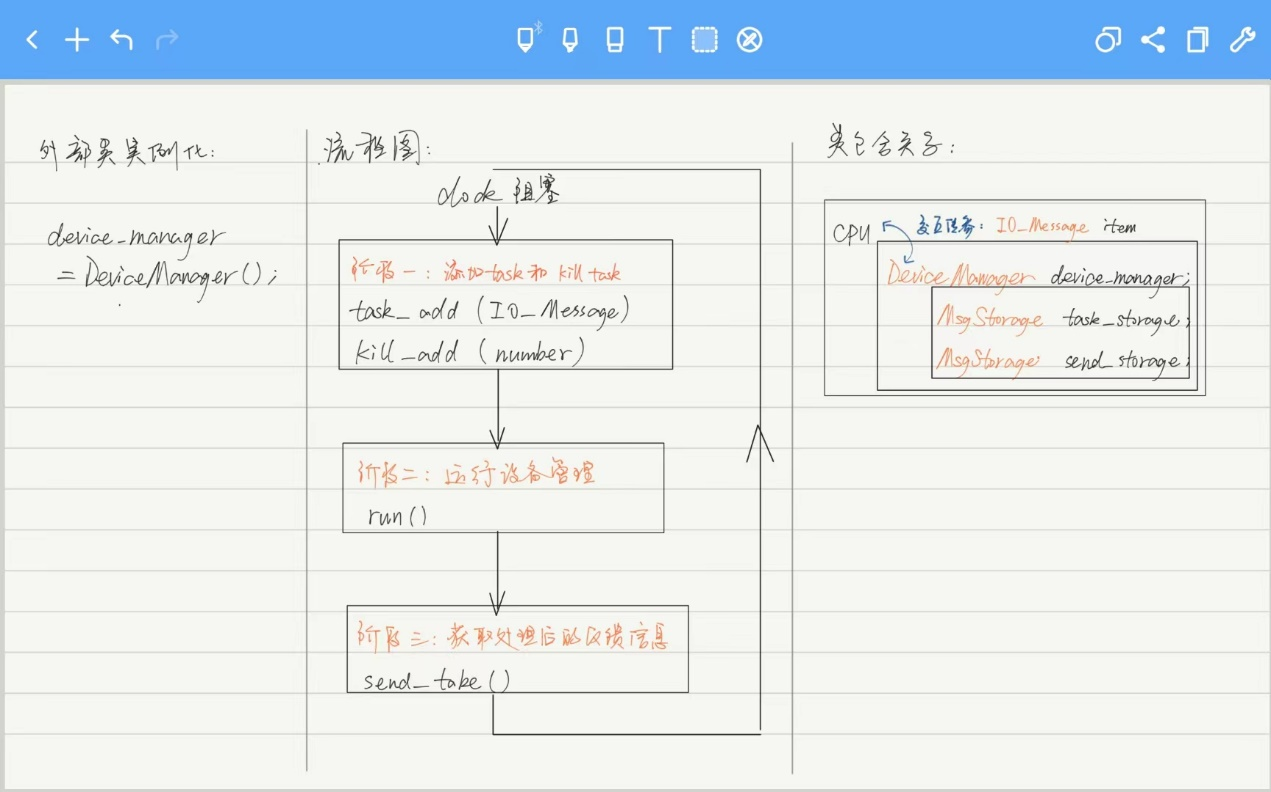 外部类实例化:
device_manager
= DeviceManager();
流程图:
clock 阻塞
阶段一: 添加task和 kill task
task_add (IO_Message)
kill_add (number)
阶段二: 运行设备管理
run()
阶段三: 获取处理后的反馈信息
send_take()
类包含关系:
CPU
交互任务: IO_Message item
DeviceManager device_manager;
MsgStorage task_storage;
MsgStorage send_storage;